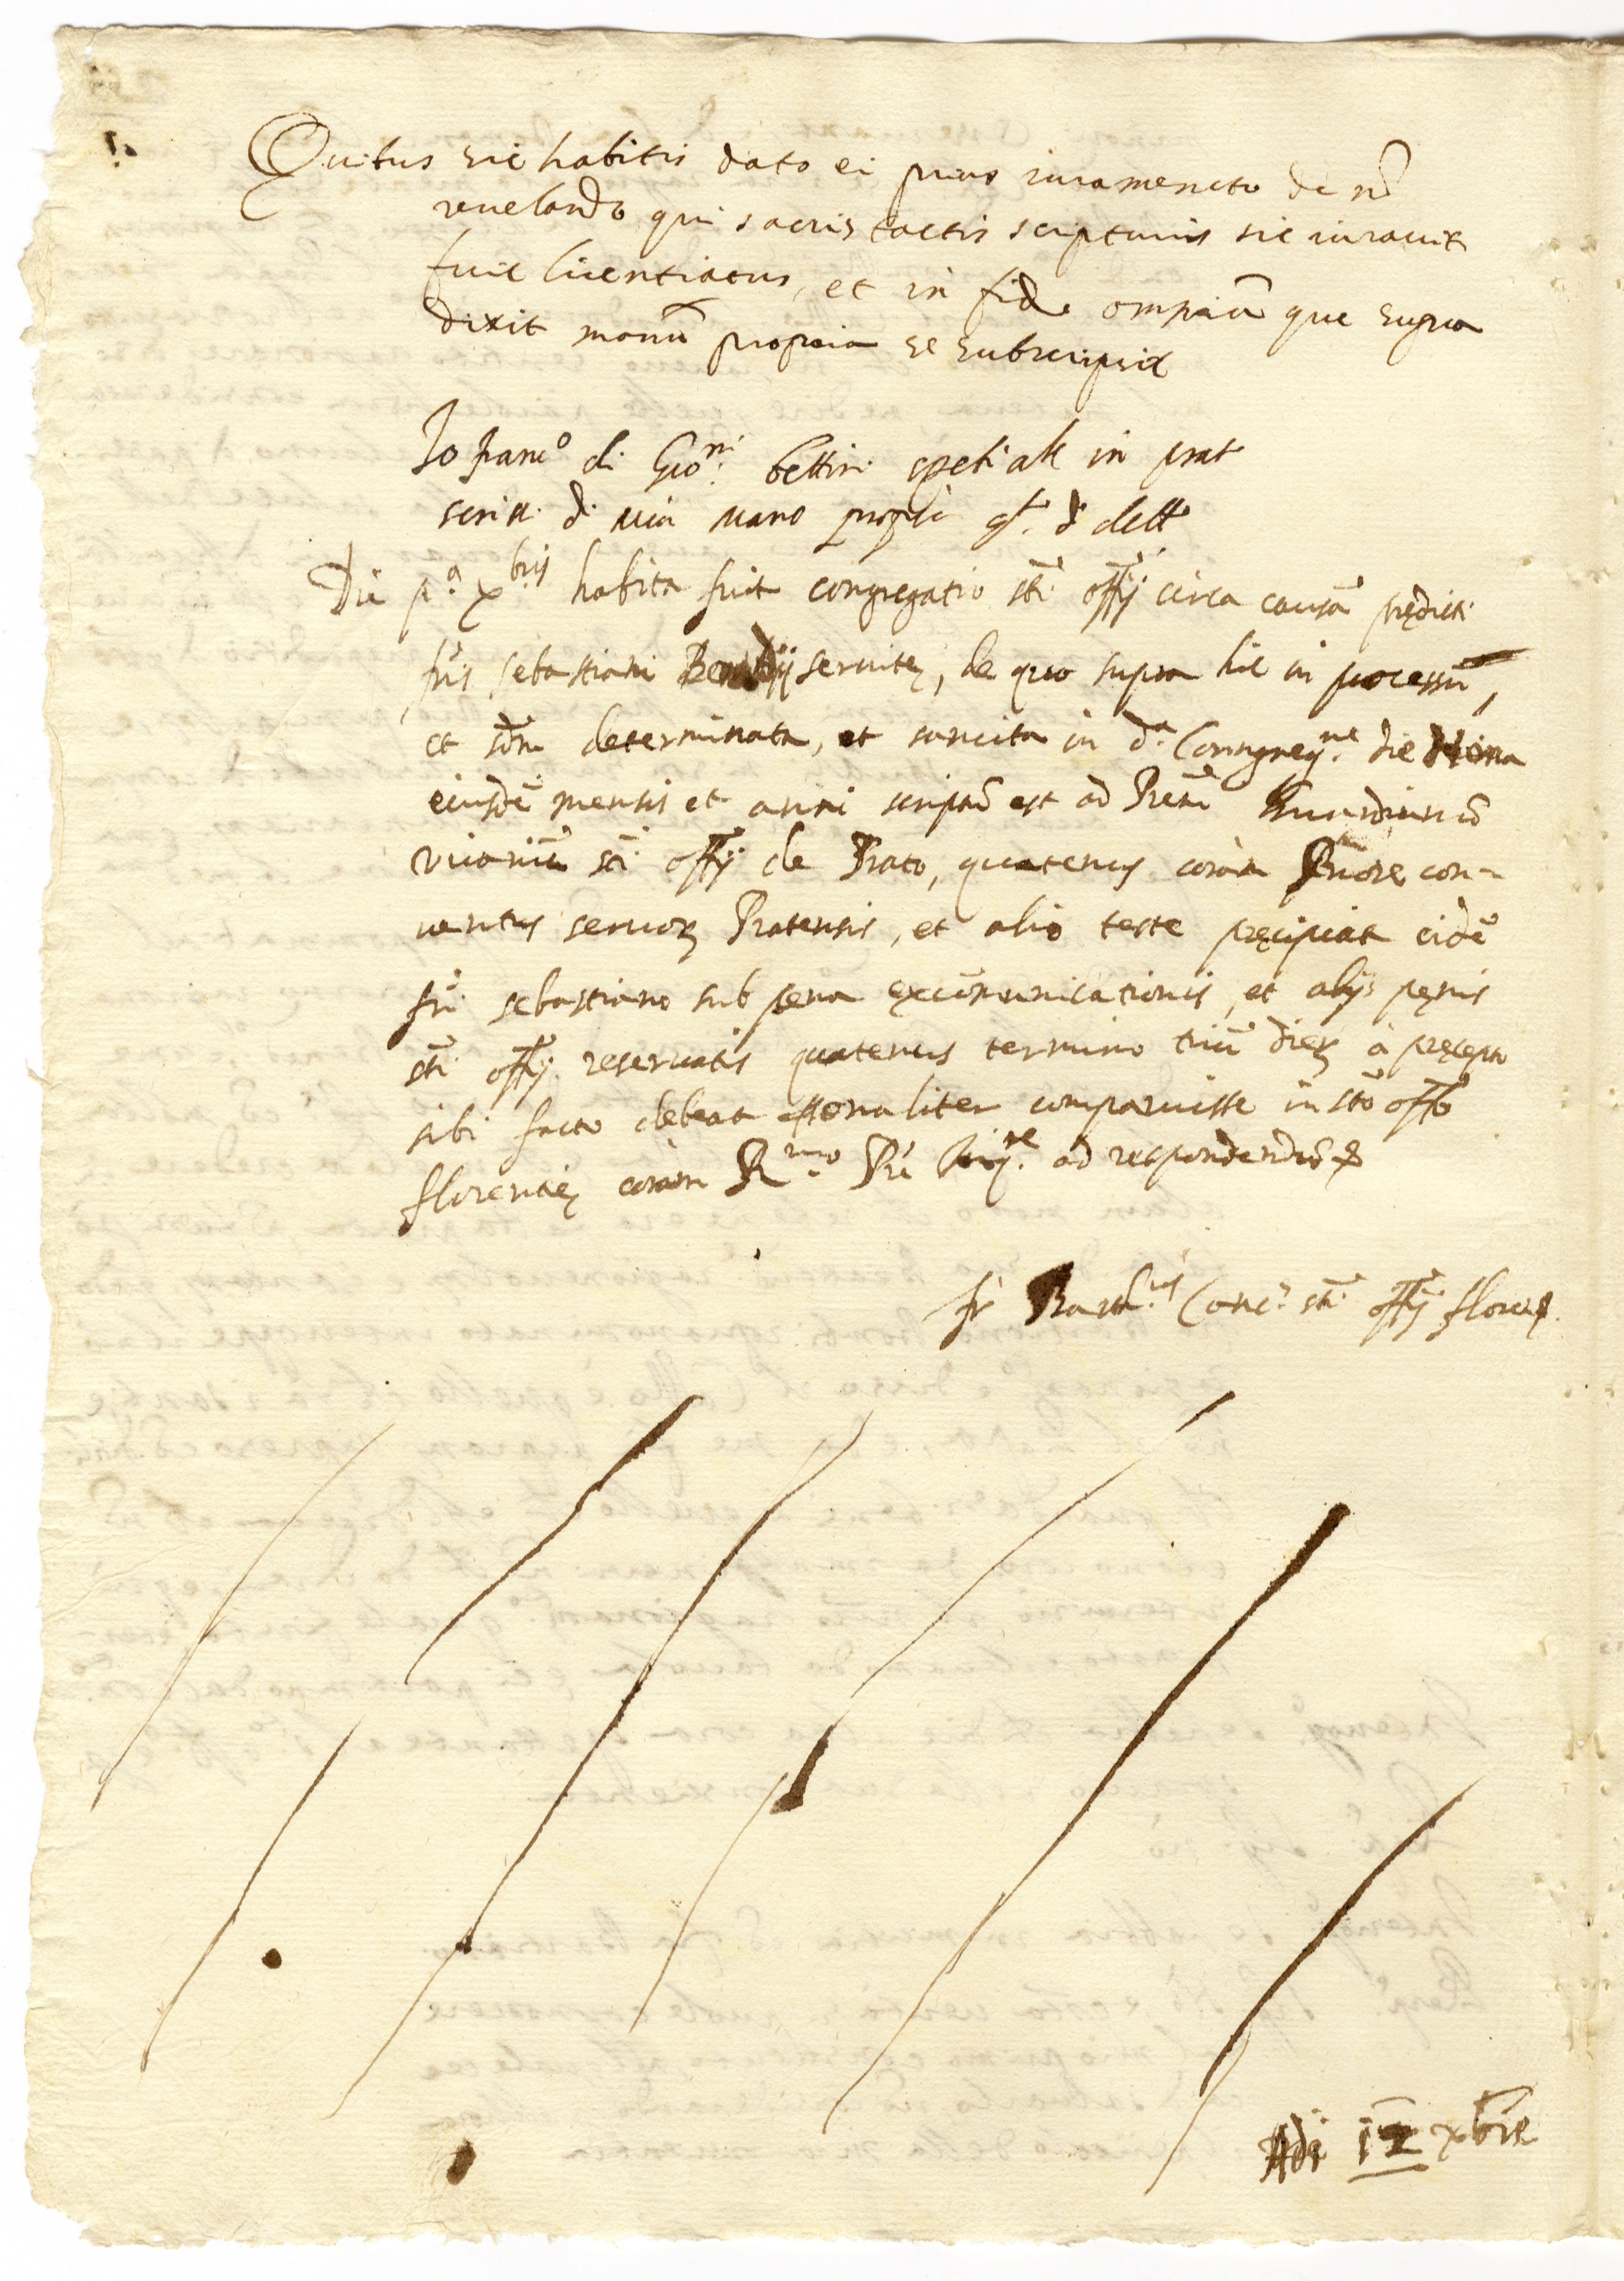 Quibus sic habitis dato ei prius iuramento de nō
reuelando qui sacris tactis scripturis sic iurauit
fuit licentiatus, et in fide omniū que supra
dixit manū propria se subscripsit
Io franc.o di Gio.ni bettini spetiale in prat
scrissi di mia mano propria qt. di detto
Die p.a xbris habita fuit congregatio sti offij circa causā prędicti
fris sebastiani seruitę, de quo supra hic in processu,
et scdm determinata, et sancita in d.a Congreg.ne die
eiusdē mensis et anni scriptū est ad Prēm Guardianū
vicariū sti offij de Prato, quatenus corā Priore con-
uentus seruor Pratensis, et alio teste pręcipiat eidē
fri sebastiano sub pena excōmunicationis, et alijs pęnis
sti offij reseruatis quatenus termino triū dier à pręcepto
sibi facto debeat personaliter comparuisse in sto offo
florentię coram R.mo Prē Inq.re ad respondendū
fr Barth.us Canc.s sti offij floren.
Adi 12 xbre